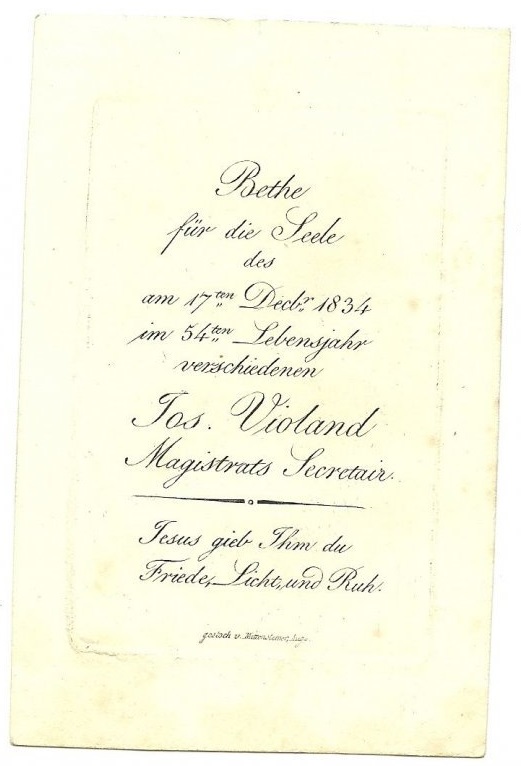 Bethe
für die Seele
des
am 17ten Decbr. 1834
im 54ten Lebensjahr
verschiedenen
Jos. Violand
Magistrats Secretair.
Jesus gieb Ihm du
Friede, Licht, und Ruh.
gestoch v.